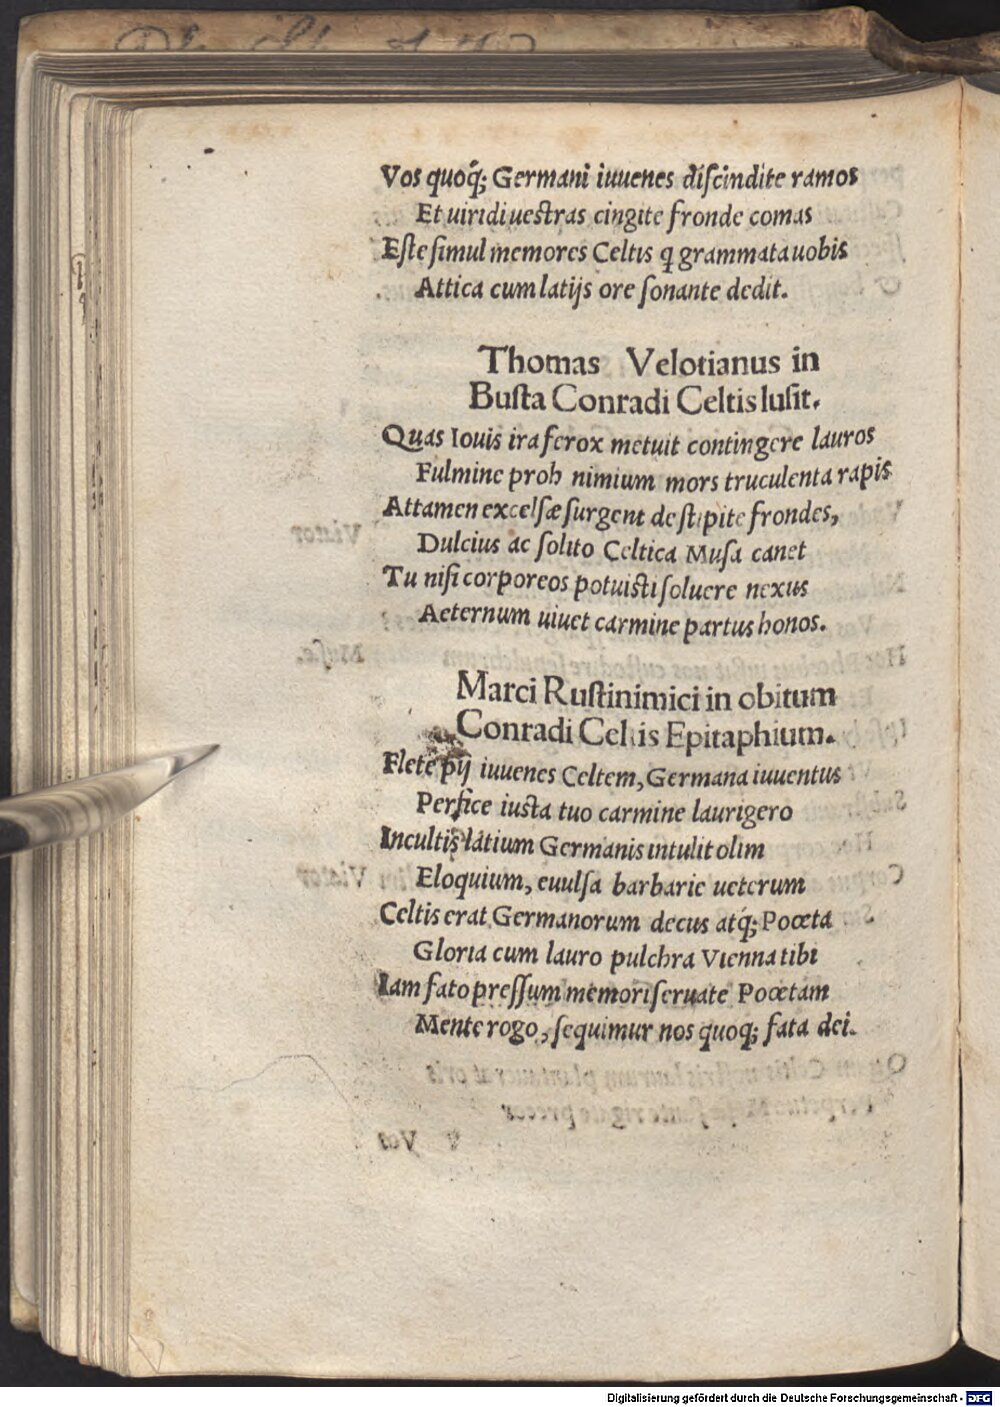 Vos quoq́; Germani iuuenes discindite ramos
Et uiridi uestras cingite fronde comas
Este simul memores Celtis q grammata uobis
Attica cum latijs ore sonante dedit.
Thomas Velotianus in
Busta Conradi Celtis lusit.
Quas Iouis ira ferox metuit contingere lauros
Fulmine proh nimium mors truculenta rapis
Attamen excelsæ surgent de stipite frondes,
Dulcius ac solito Celtica Musa canet
Tu nisi corporeos potuisti soluere nexus
Aeternum uiuet carmine partus honos.
Marci Rustinimici in obitum
Conradi Celtis Epitaphium.
Flete pij iuuenes Celtem, Germana iuuentus
Perfice iusta tuo carmine laurigero
Incultis latium Germanis intulit olim
Eloquium, euulsa barbarie ueterum
Celtis erat Germanorum decus atq́; Poœta
Gloria cum lauro pulchra Vienna tibi
Iam fato pressum memori seruate Poœtam
Mente rogo, sequimur nos quoq; fata dei.
Digitalisierung gefördert durch die Deutsche Forschungsgemeinschaft - DFG